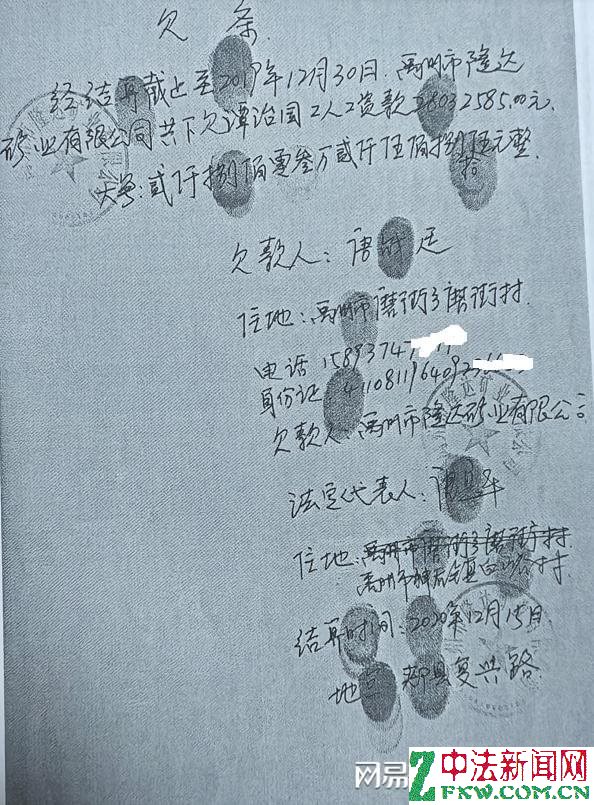 欠条
经结算截止至2019年12月30日.禹州市隆达
矿业有限公司共下欠谭治国工人工资款28032585.00元.
大写:贰仟捌佰零叁万贰仟伍佰捌拾伍元整.
欠款人:唐 廷
住地:禹州市磨街乡磨街村.
电话 15893747
身份证 411081196409
欠款人:禹州市隆达矿业有限公司
法定代表人:
住地:禹州市磨街乡磨街村
禹州市神垕镇白峪村
结算时间:2020年12月15日.
地点 郏县复兴路.
网易
中法新闻网
ZFKW.COM.CN